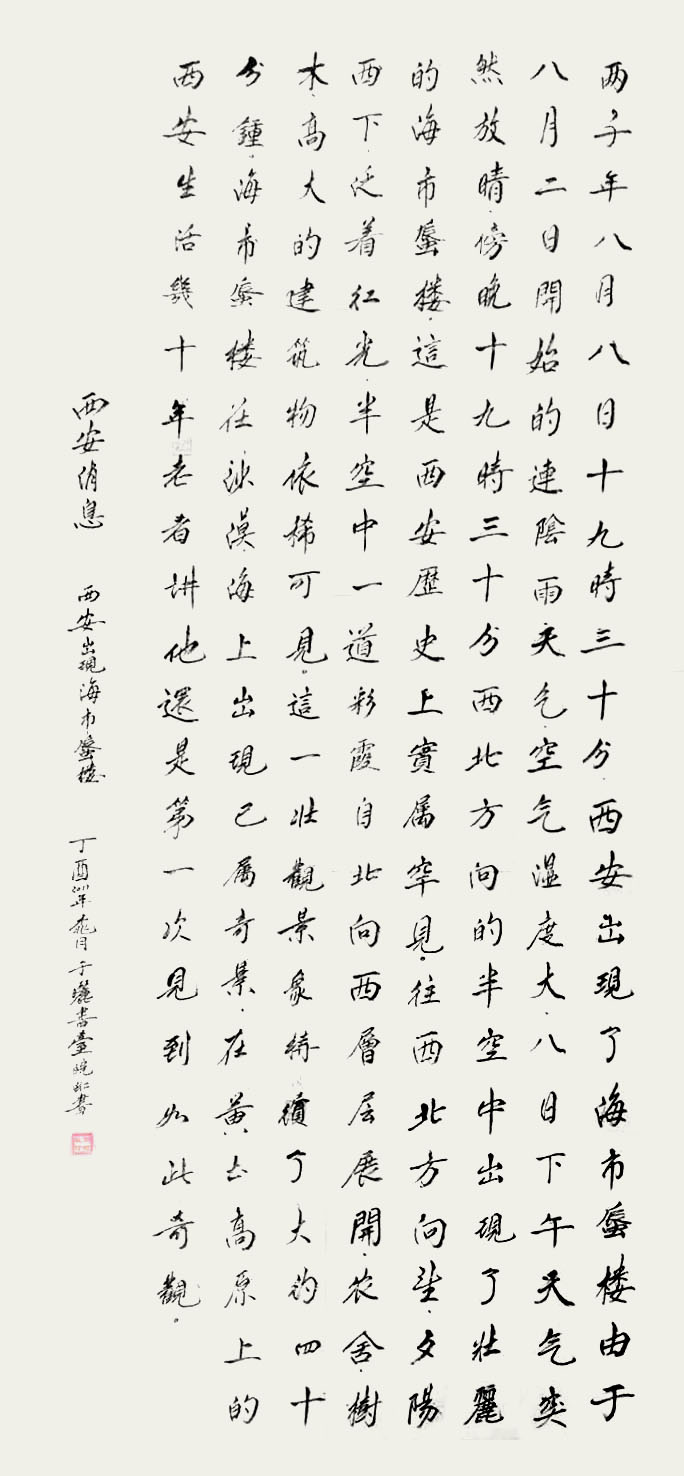 丙子年八月八日十九時三十分.西安出現了海市蜃楼由于
八月二日開始的連陰雨天气.空气湿度大.八日下午天气突
然放晴.傍晚十九時三十分西北方向的半空中出現了壮麗
的海市蜃楼.這是西安歷史上實属罕見.往西北方向望.夕陽
西下.泛着红光.半空中一道彩霞自北向西層层展開.农舍.樹
木.高大的建筑物依稀可見。這一壮觀景象待續了大约四十
分鍾.海市蜃楼在沙漠.海上出現已属奇景.在黄土高原上的
西安生活幾十年老者讲他還是第一次見到如此奇觀。
西安消息 西安出現海市蜃楼 丁酉年月于書臺晚書